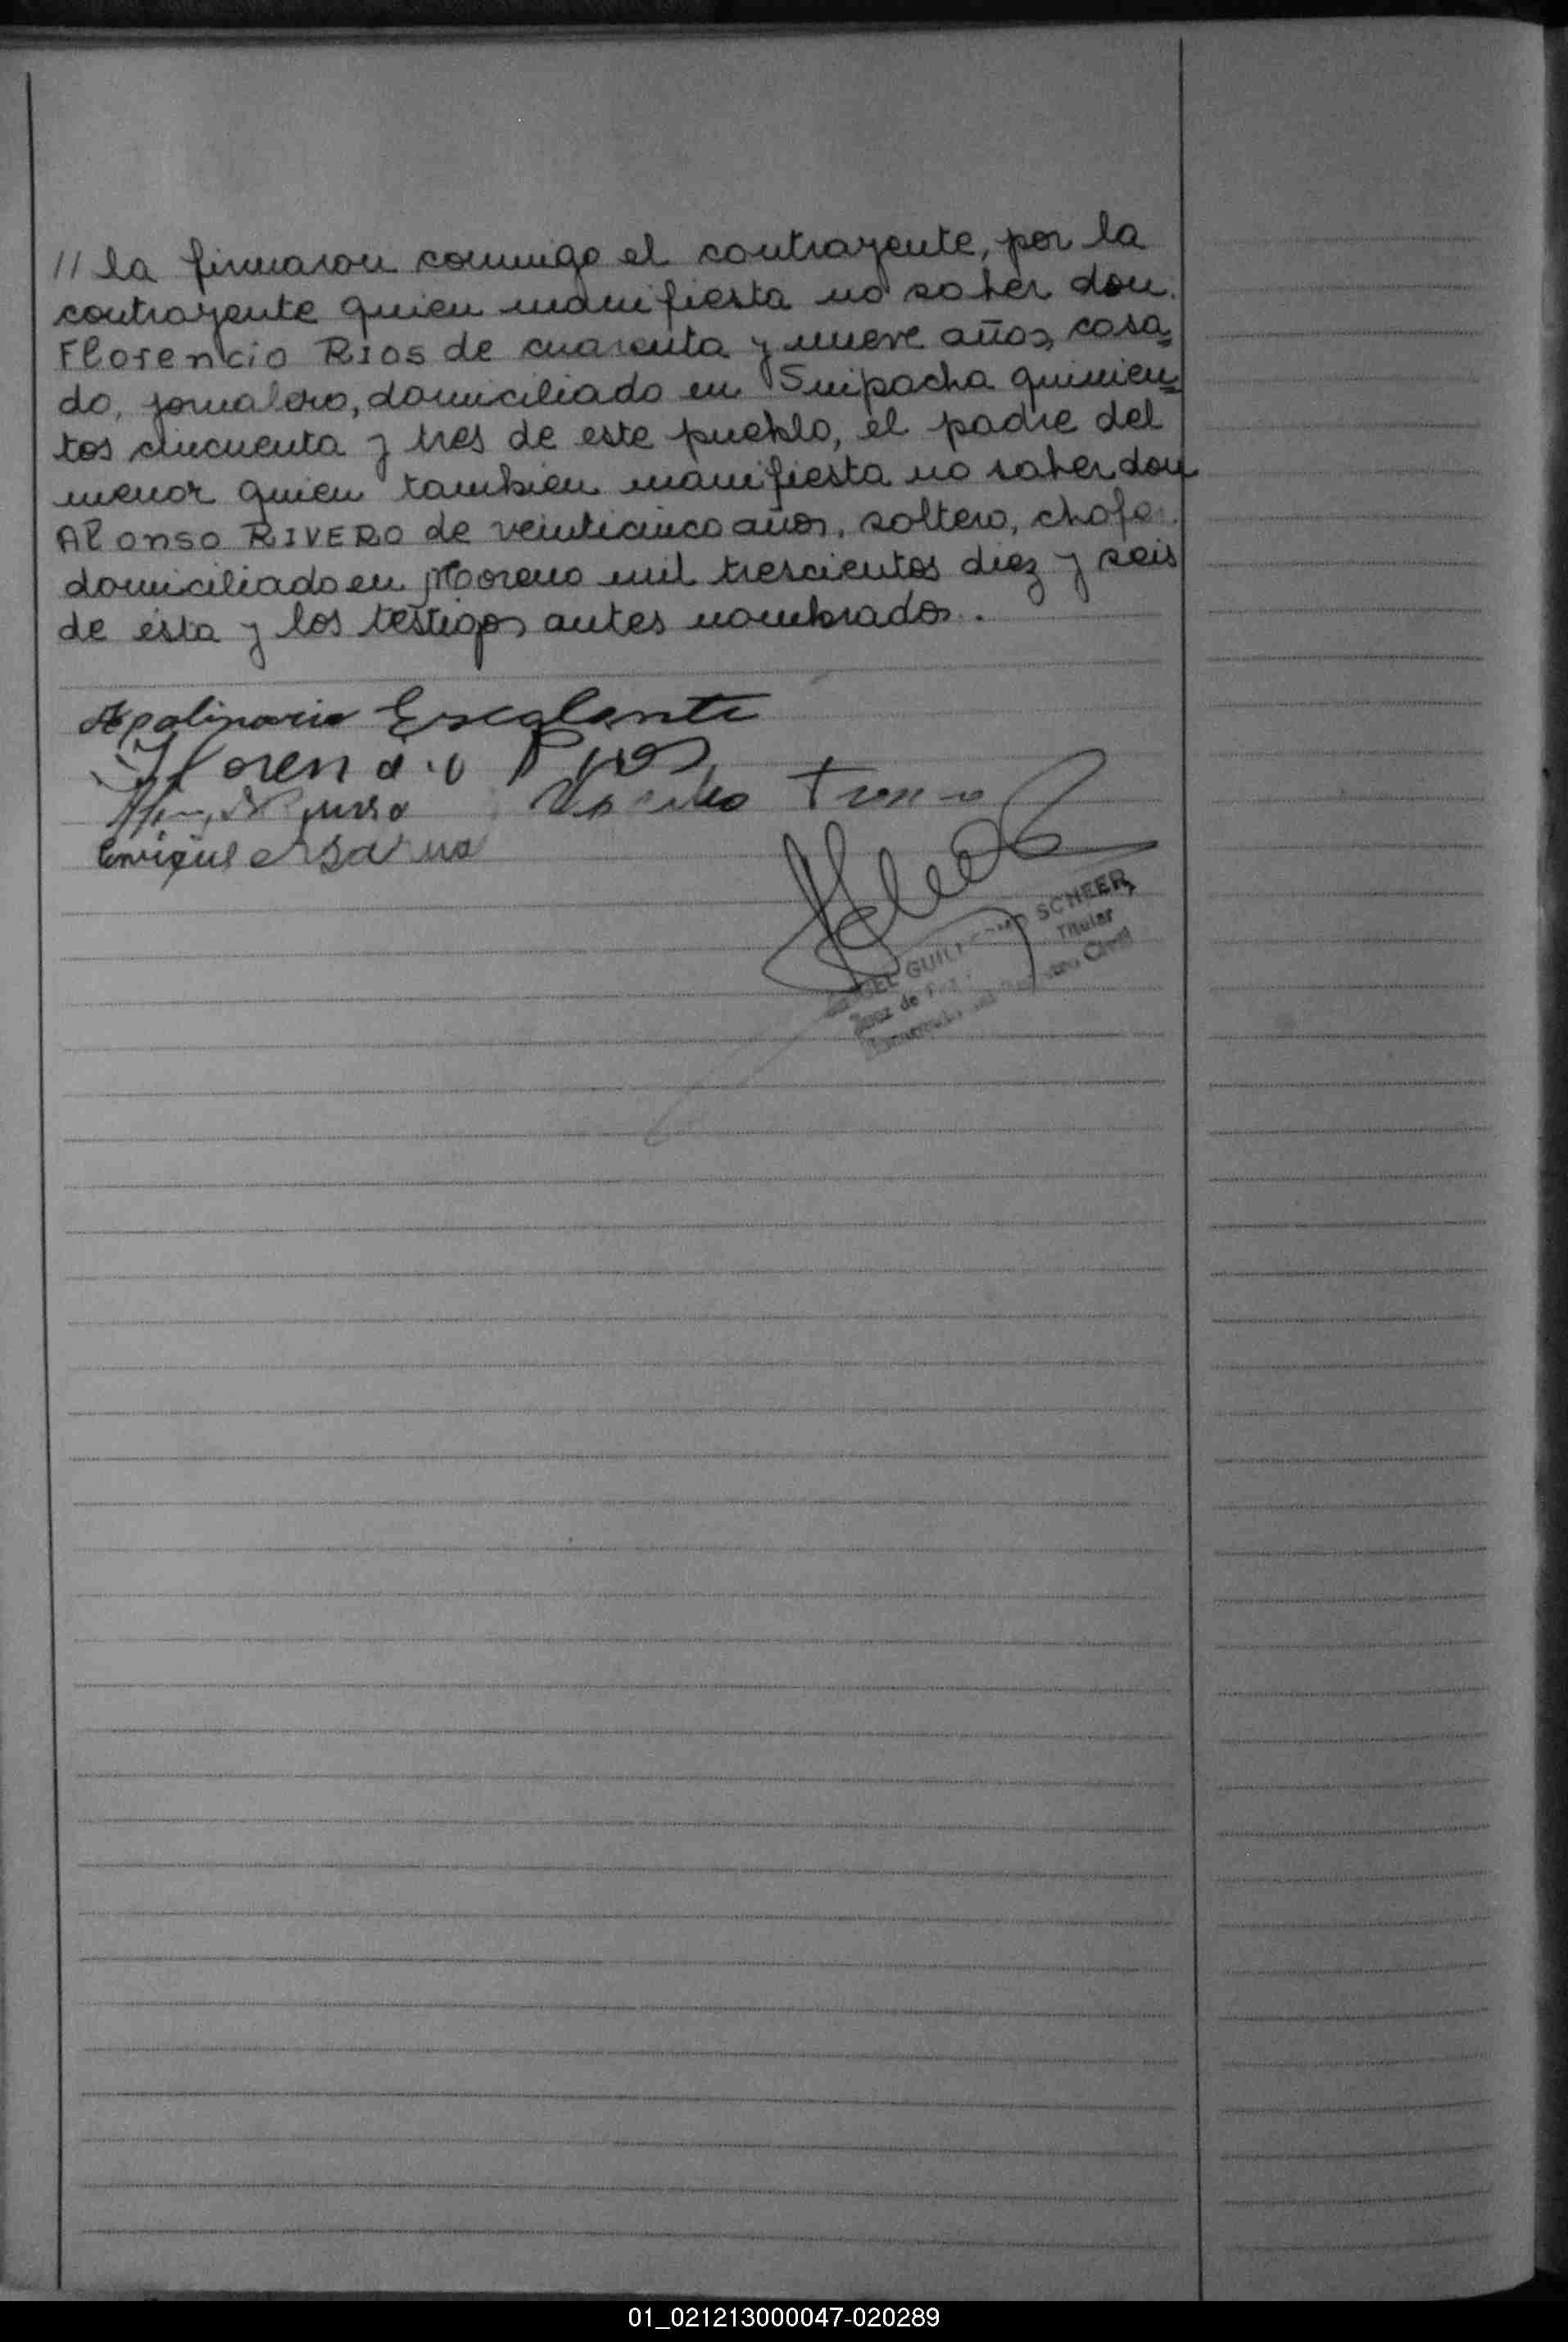 // la firmaron conmigo el contrayente, por la
contrayente quien manifiesta no saber don
Florencio Rios de cuarenta y nueve años, casa=
do, jornalero, domiciliado en Suipacha quinien=
tos cincuenta y tres de este pueblo, el padre del
menor quien tambien manifiesta no saber don
Alonso RIVERO de veinticinco años, soltero, chofer
domiciliado en Moreno mil trescientos diez y seis
de ésta y los testigos antes nombrados.
Apolinario Escalante
Florencio Rios
Enrique
GUILLERMO SCHEER
Titular
Juez de Paz
Civil
01_021213000047-020289